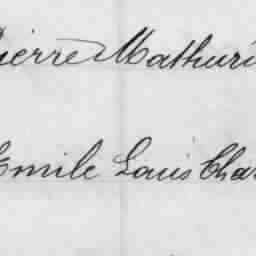 Pierre Mathuri
Emile Louis Cha